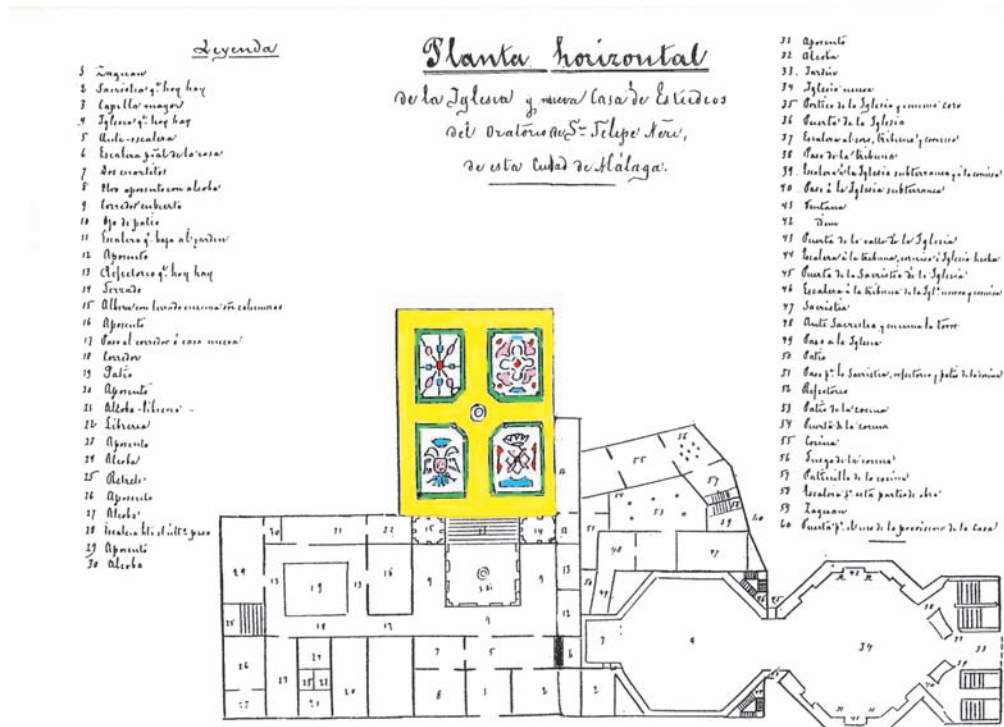 Leyenda
1 Zaguan
2 Sacristia q.e hoy hay
3 Capilla mayor
4 Iglesia q.e hoy hay
5 Ante-escalera
6 Escalera pral de la casa
7 Dos cuartitos
8 Otro aposento con alcoba
9 Corredor cubierto
10 Ojo de patio
11 Escalera q.e baja al jardin
12 Aposento
13 Refectorio q.e hoy hay
14 Terrado
15 Alberca con terrado encima con columnas
16 Aposento
17 Paso al corredor ó casa nueva
18 Corredor
19 Patio
20 Aposento
21 Alcoba-libreria
22 Libreria
23 Aposento
24 Alcoba
25 Retrete
26 Aposento
27 Alcoba
28 Escalera
29 Aposento
30 Alcoba
Planta horizontal
de la Iglesia y nueva Casa de Estudios
del Oratorio de Sn. Felipe Neri,
de esta Ciudad de Málaga.
31 Aposento
32 Alcoba
33. Jardin
34 Iglesia nueva
35 Portico de la Iglesia y encima coro
36 Puerta de la Iglesia
37 Escalera al coro, tribuna y cornisa
38 Paso de la tribuna
39. Escalera á la Iglesia subterranea y á la cornisa
40 Paso á la Iglesia subterranea
41 Ventana
42 Idem
43 Puerta de la calle de la Iglesia
44 Escalera á la tribuna, cornisa é Iglesia hecha
45 Puerta de la Sacristia de la Iglesia
46 Escalera á la tribuna de la Igla. nueva y cornisa
47 Sacristia
48 Ante Sacristia y encima la torre
49 Paso a la Iglesia
50 Patio
51 Paso pa. la Sacristia, refectorio y patio de la cocina
52 Refectorio
53 Patio de la cocina
54 Puerta de la cocina
55 Cocina
56 Fuego de la cocina
57 Patinillo de la cocina
58 Escalera pa. esta parte de obra
59 Zaguan
60 Puerta pa. el uso de la provision de la Casa